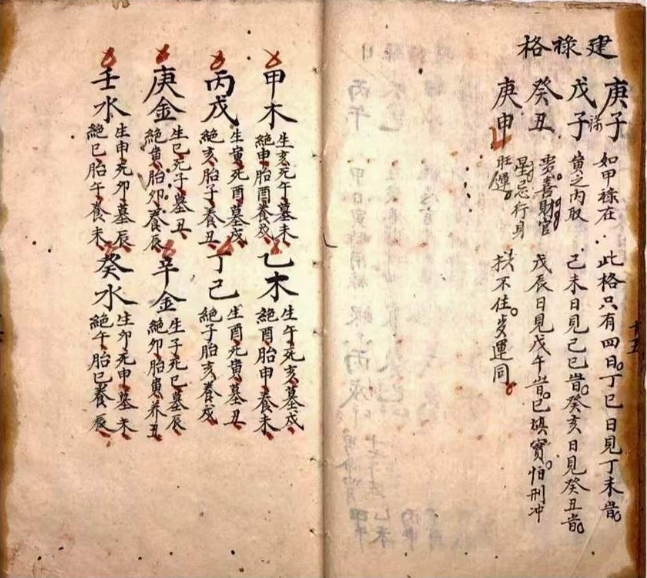 建祿格
庚子 如甲祿在 此格只有四日。丁巳日見丁未旹。
戊子 寅之内取 己未日見己巳旹。癸亥日見癸丑旹。
癸丑 喜財官 戊辰日見戊午旹。已填實怕刑冲
庚申 忌行身
旺 不住。岁運同
甲木 生亥死午墓未
絕申胎酉養戌
乙木 生午死亥墓戌
絕酉胎申養未
丙戊 生寅死酉墓戌
絕亥胎子養丑
丁己 生酉死寅墓丑
絕子胎亥養戌
庚金 生巳死子墓丑
絕寅胎卯養辰
辛金 生子死巳墓辰
絕卯胎寅养丑
壬水 生申死卯墓辰
絕巳胎午養未
癸水 生卯死申墓未
絕午胎巳養辰